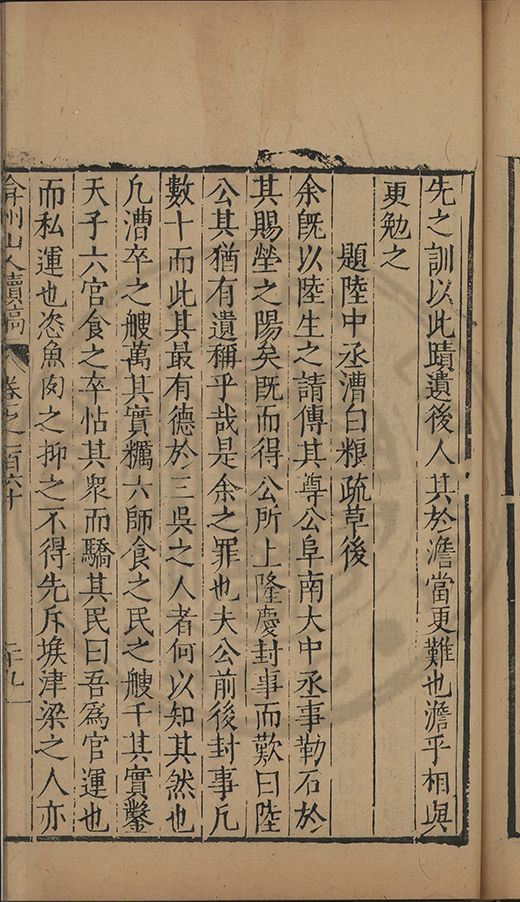 先之訓以此蹟遺後人其於澹當更難也澹乎相與
更勉之
題陸中丞漕白粮疏草後
余旣以陸生之請傳其尊公阜南大中丞事勒石於
其賜塋之陽矣旣而得公所上隆慶封事而歎曰陸
公其猶有遺稱乎哉是余之罪也夫公前後封事凡
數十而此其最有德於三吳之人者何以知其然也
凡漕卒之艘萬其實糲六師食之民之艘千其實鑿
天子六官食之卒怙其衆而驕其民曰吾爲官運也
而私運也恣魚肉之抑之不得先斥堠津梁之人亦
弇州山人續稿 卷之一百六十 二十九